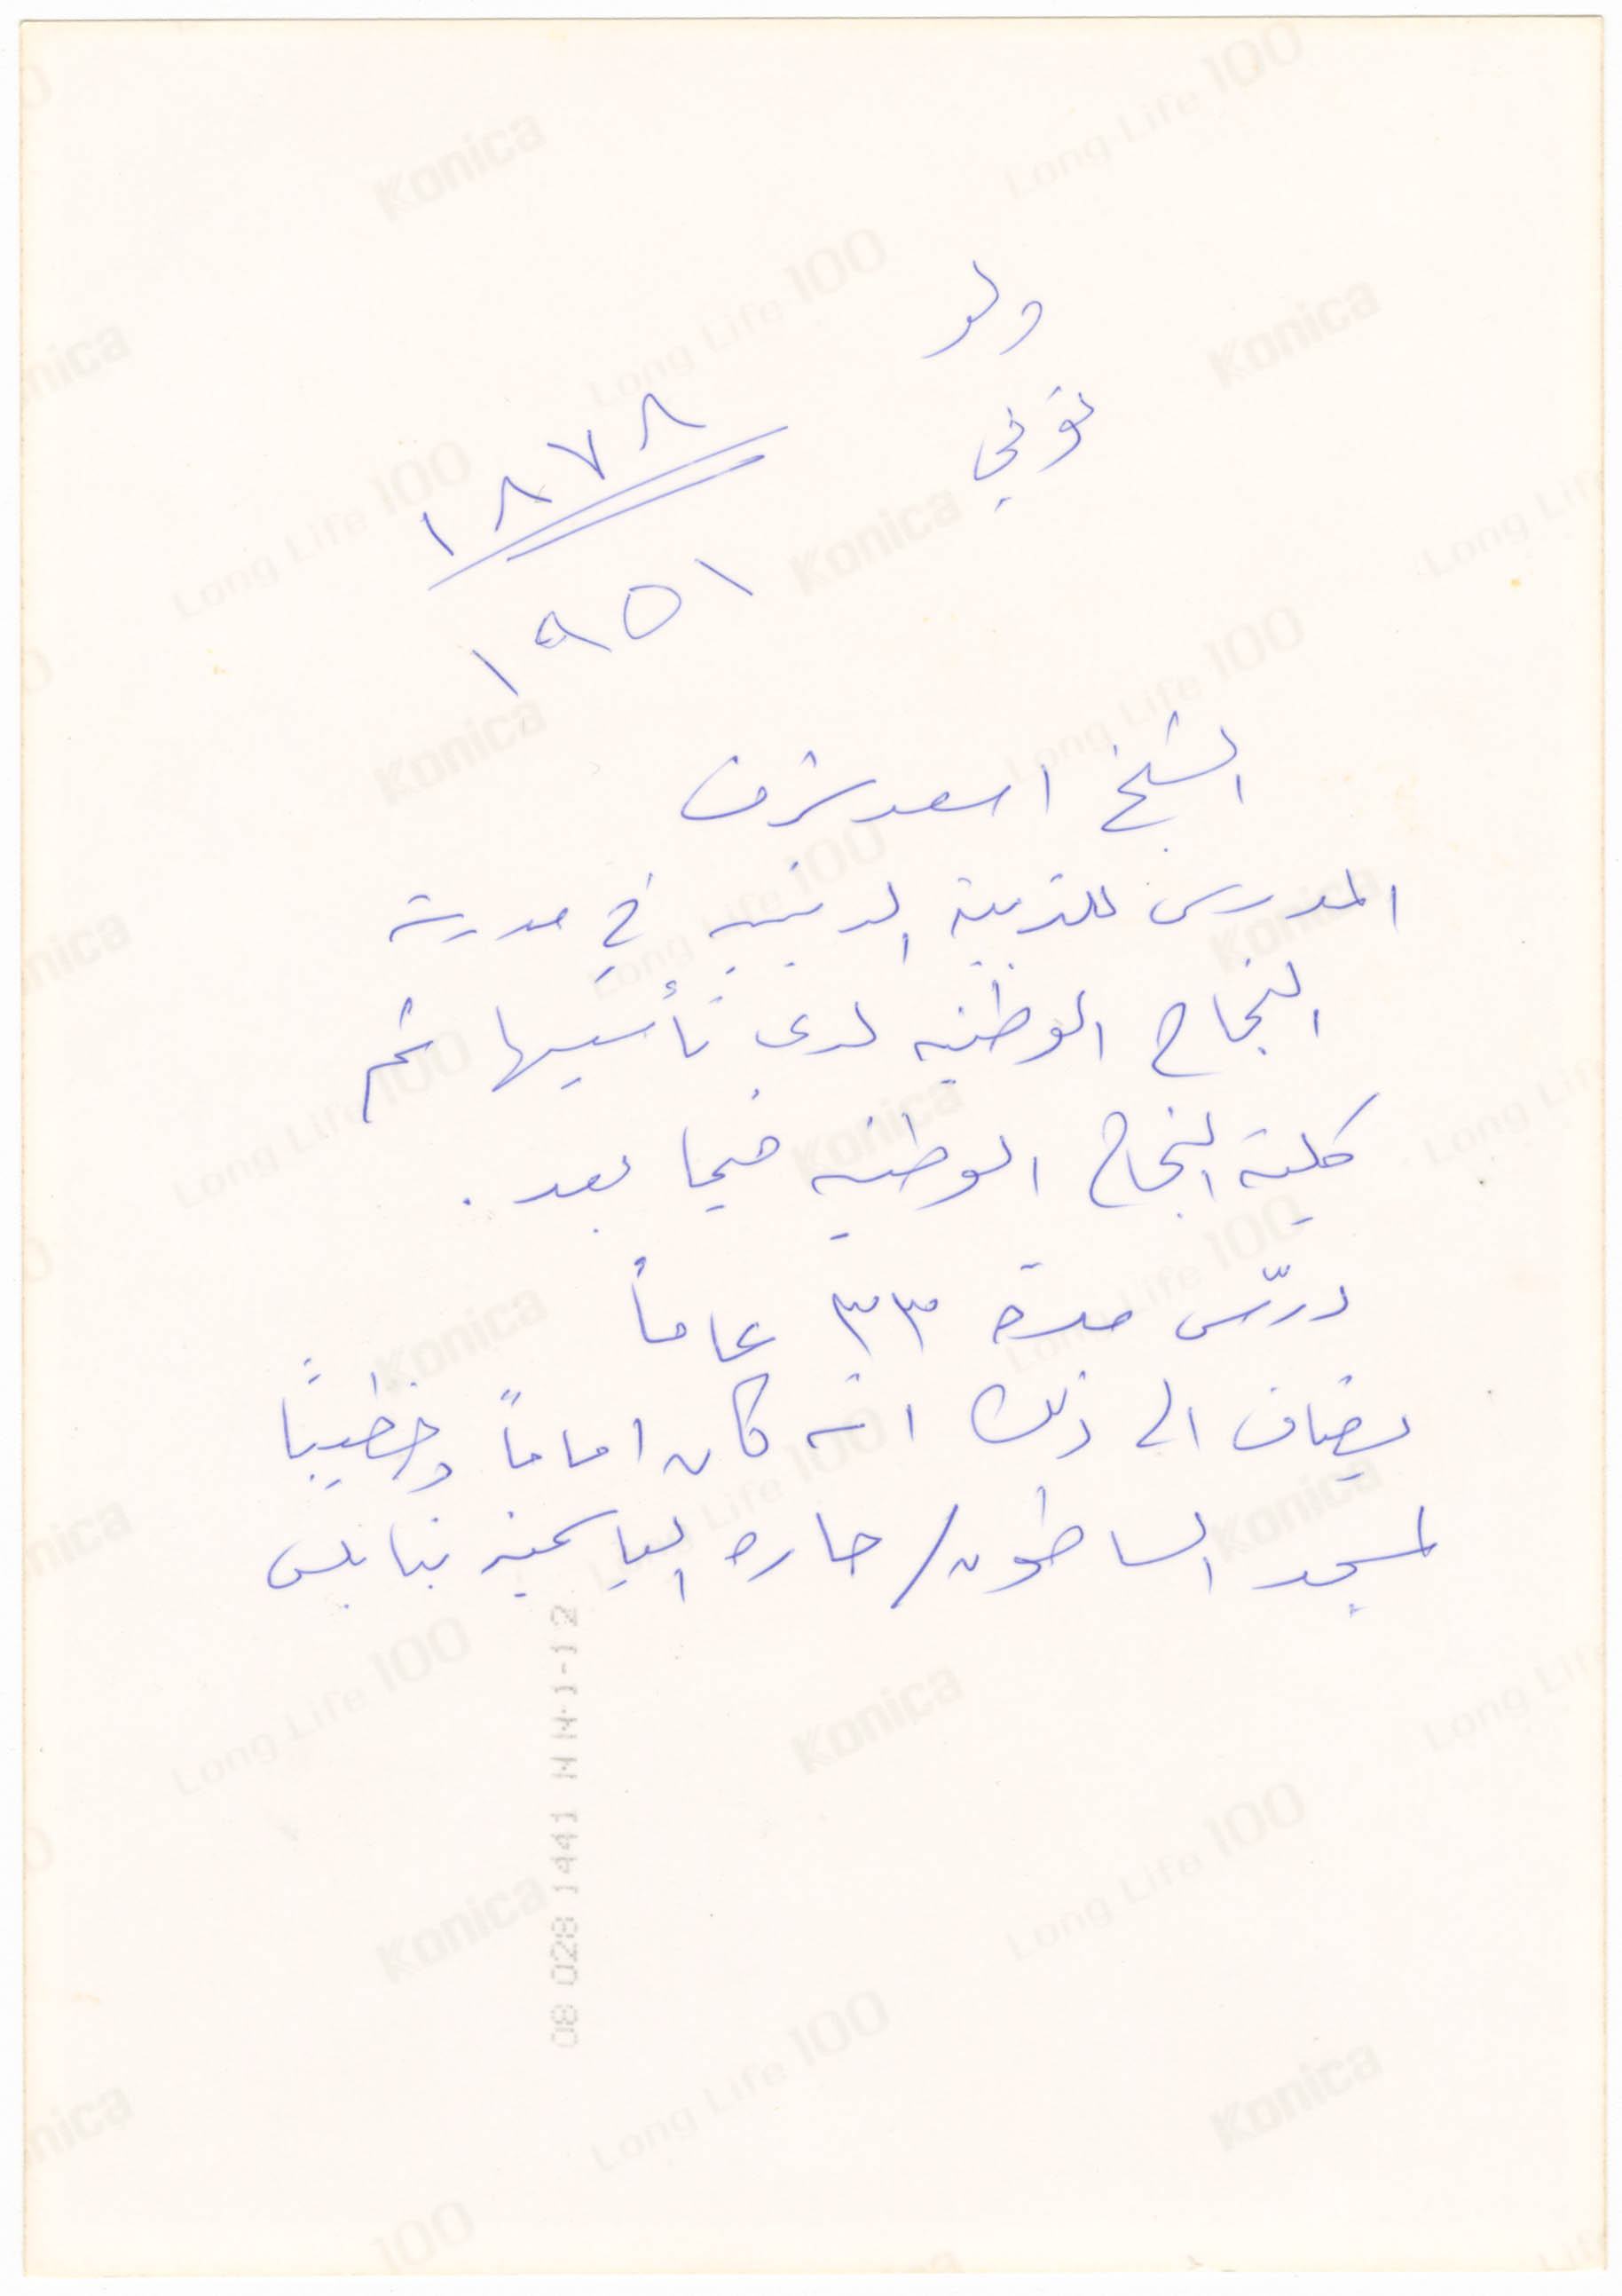 ولد
توفي
١٨٧٨
١٩٥١
الشيخ اسعد شرف
المدرس للتربية الدينيه في مدرسة
النجاح الوطنيه لدى تأسيسها ثم
كلية النجاح الوطنيه فيما بعد .
درّس مدة ٣٣ عاماً
يضاف الى ذلك انه كان اماماً وخطيباً
لمسجد الساطون / حاره الياسمينه بنابلس
08 028 1441 N N-1-12
Konica
Long Life 100